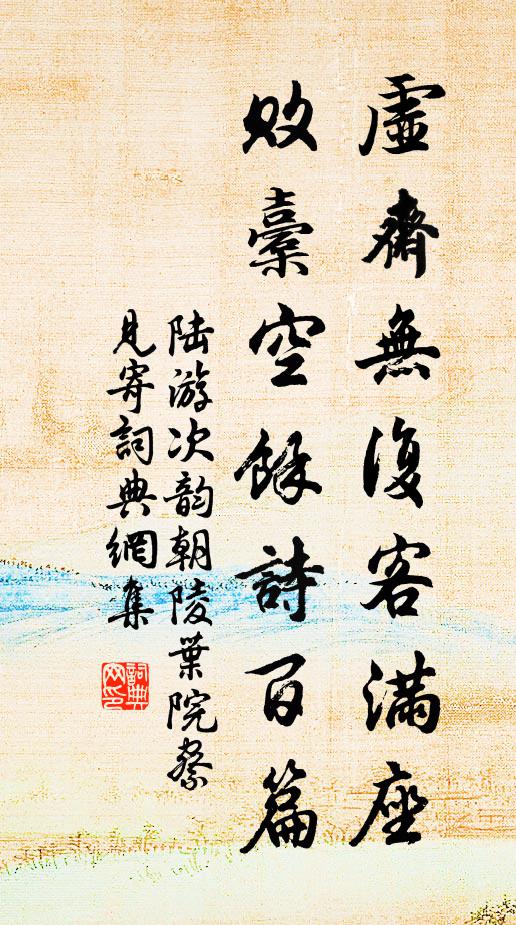 虛齋無復客滿座
敗橐空餘詩百篇
陸游次韵朝陵葉院祭
見寄詞典網集
詞典
网印